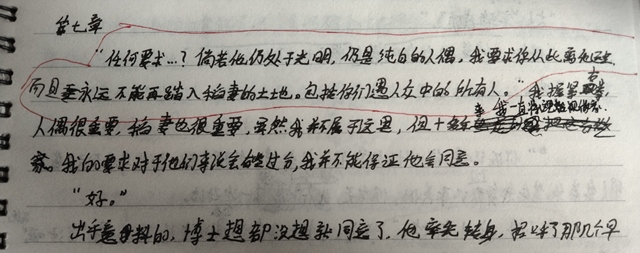 第七章
“任何要求…？倘若他仍处于光明，仍是纯白的人偶，我要求你从此离他远些
而且永远不能再踏入稻妻的土地。包括你们愚人众中的所有人。”我握紧
我一直
人偶很重要，稻妻也很重要，虽然我并不属于这里，但十多年
察。我的要求对于他们来说会有些过分，我并不能保证他会同意。
“好。”
出乎意料的，博士想都没想就同意了，他率先转身，招呼了那几个早